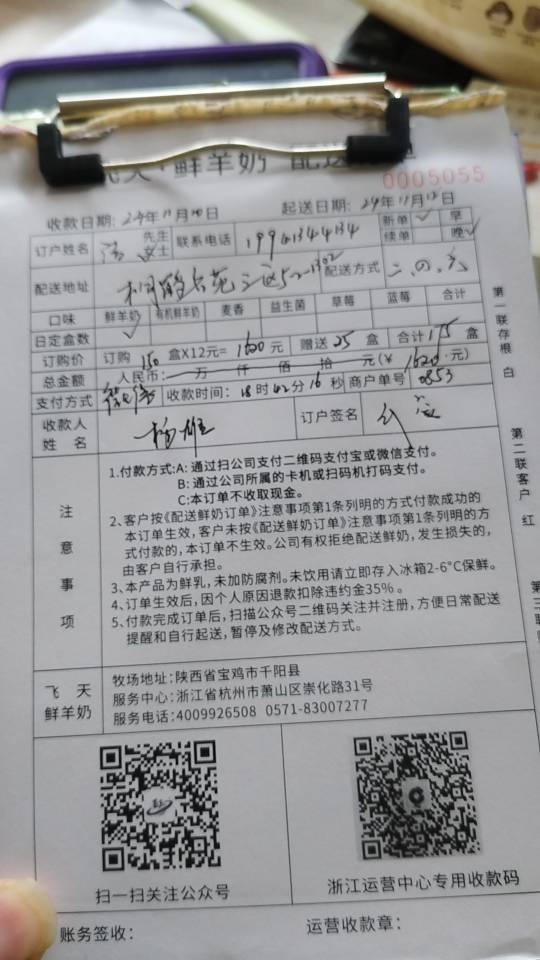 飞天·鲜羊奶 配送订单
0005055
收款日期: 24年11月10日 起送日期: 24年11月12日
订户姓名 先生 女士 联系电话 新单 ✓ 续单 早 晚 ✓
配送地址 配送方式 二.四.六
口味 鲜羊奶 有机鲜羊奶 麦香 益生菌 草莓 蓝莓 合计
日定盒数 ✓
订购价 订购 150 盒X12元= 元 赠送 25 盒 合计 175 盒
总金额 人民币: 万 仟 佰 拾 元(¥ 元)
支付方式 收款时间: 18时42分16秒 商户单号 0853
收款人姓名 杨雄 订户签名
注意事项
1.付款方式:A: 通过扫公司支付二维码支付宝或微信支付。
B: 通过公司所属的卡机或扫码机打码支付。
C:本订单不收取现金。
2、客户按《配送鲜奶订单》注意事项第1条列明的方式付款成功的
本订单生效,客户未按《配送鲜奶订单》注意事项第1条列明的方
式付款的,本订单不生效。公司有权拒绝配送鲜奶,发生损失的,
由客户自行承担。
3、本产品为鲜乳,未加防腐剂。未饮用请立即存入冰箱2-6°C保鲜。
4、订单生效后,因个人原因退款扣除违约金35%。
5、付款完成订单后,扫描公众号二维码关注并注册,方便日常配送
提醒和自行起送,暂停及修改配送方式。
飞天
鲜羊奶
牧场地址:陕西省宝鸡市千阳县
服务中心:浙江省杭州市萧山区崇化路31号
服务电话:4009926508 0571-83007277
扫一扫关注公众号
浙江运营中心专用收款码
账务签收: 运营收款章:
第一联存根 白
第二联客户 红
第三联